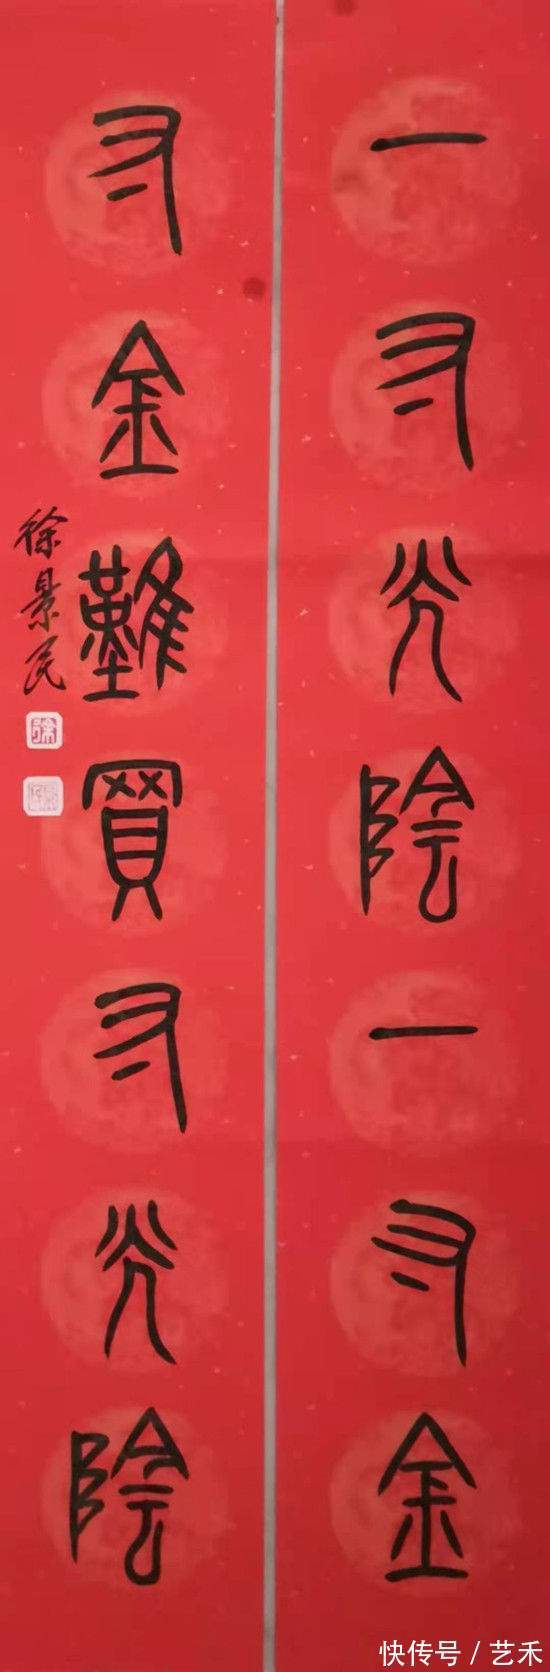 一寸光陰一寸金
寸金難買寸光陰
徐景民
快传号 / 艺禾